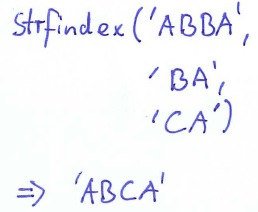 Strfindex('ABBA',
'BA',
'CA')
=> 'ABCA'